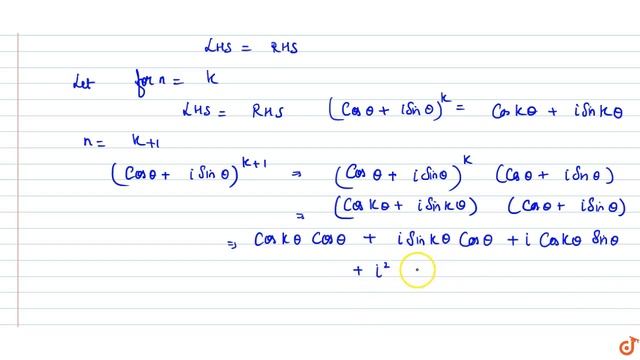 LHS = RHS
Let for n = k
LHS = RHS (Cosθ + iSinθ)^k = Coskθ + iSinkθ
n = k+1
(Cosθ + iSinθ)^k+1 ⇒ (Cosθ + iSinθ)^k (Cosθ + iSinθ)
⇒ (Coskθ + iSinkθ) (Cosθ + iSinθ)
⇒ Coskθ Cosθ + iSinkθ Cosθ + i Coskθ Sinθ
+ i²